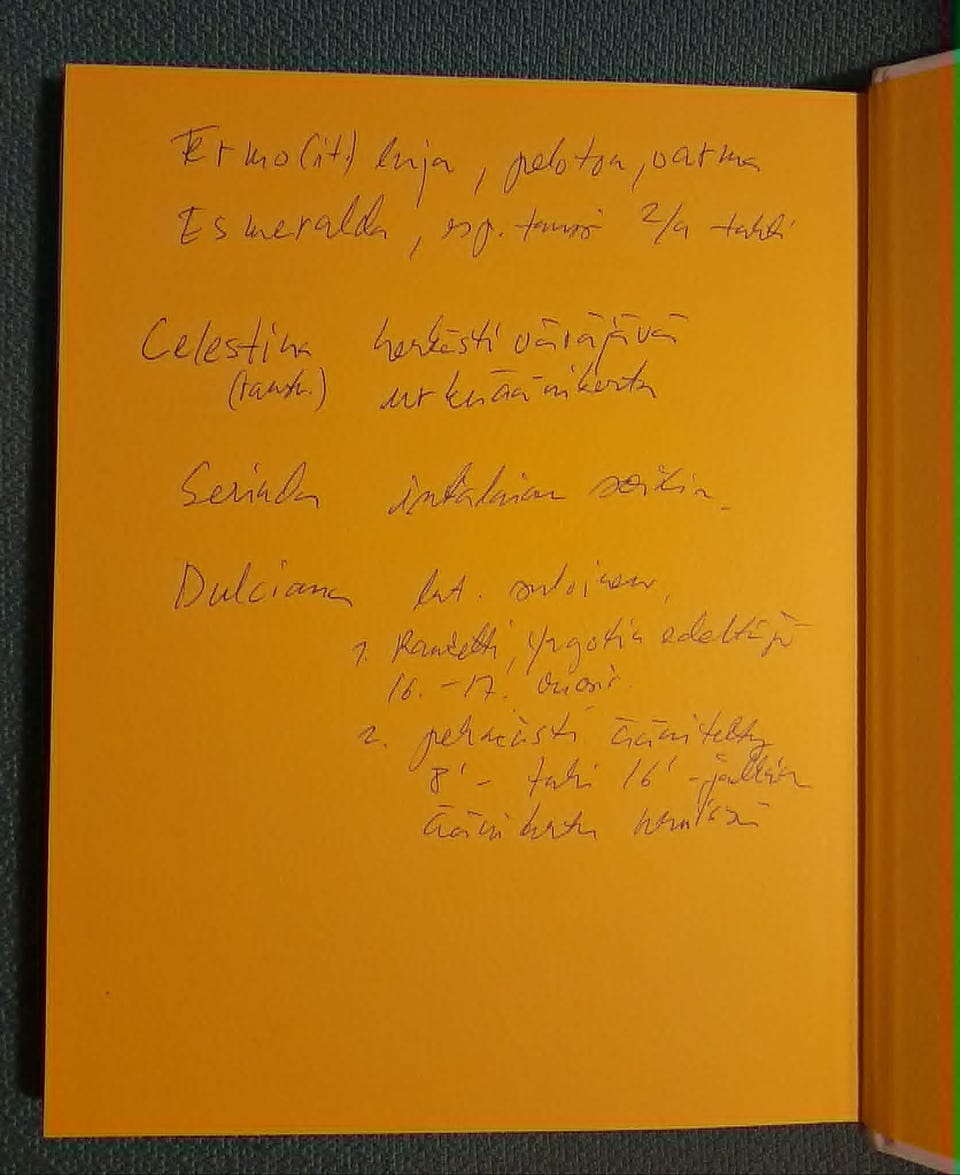 Termo (it.) luja, peloton, varma
Esmeralda, esp. tanssi 2/4 tahti
Celestina herkästi väräjävä
(ransk.) urkuäänikerta
Serinda intialainen soitin
Dulciana lat. suloinen,
1. Ranketti, fagotin edeltäjä
16.-17. vuosis.
2. pehmeästi äänitetty
8' - tahi 16' - jalkain
äänikerta uruissa